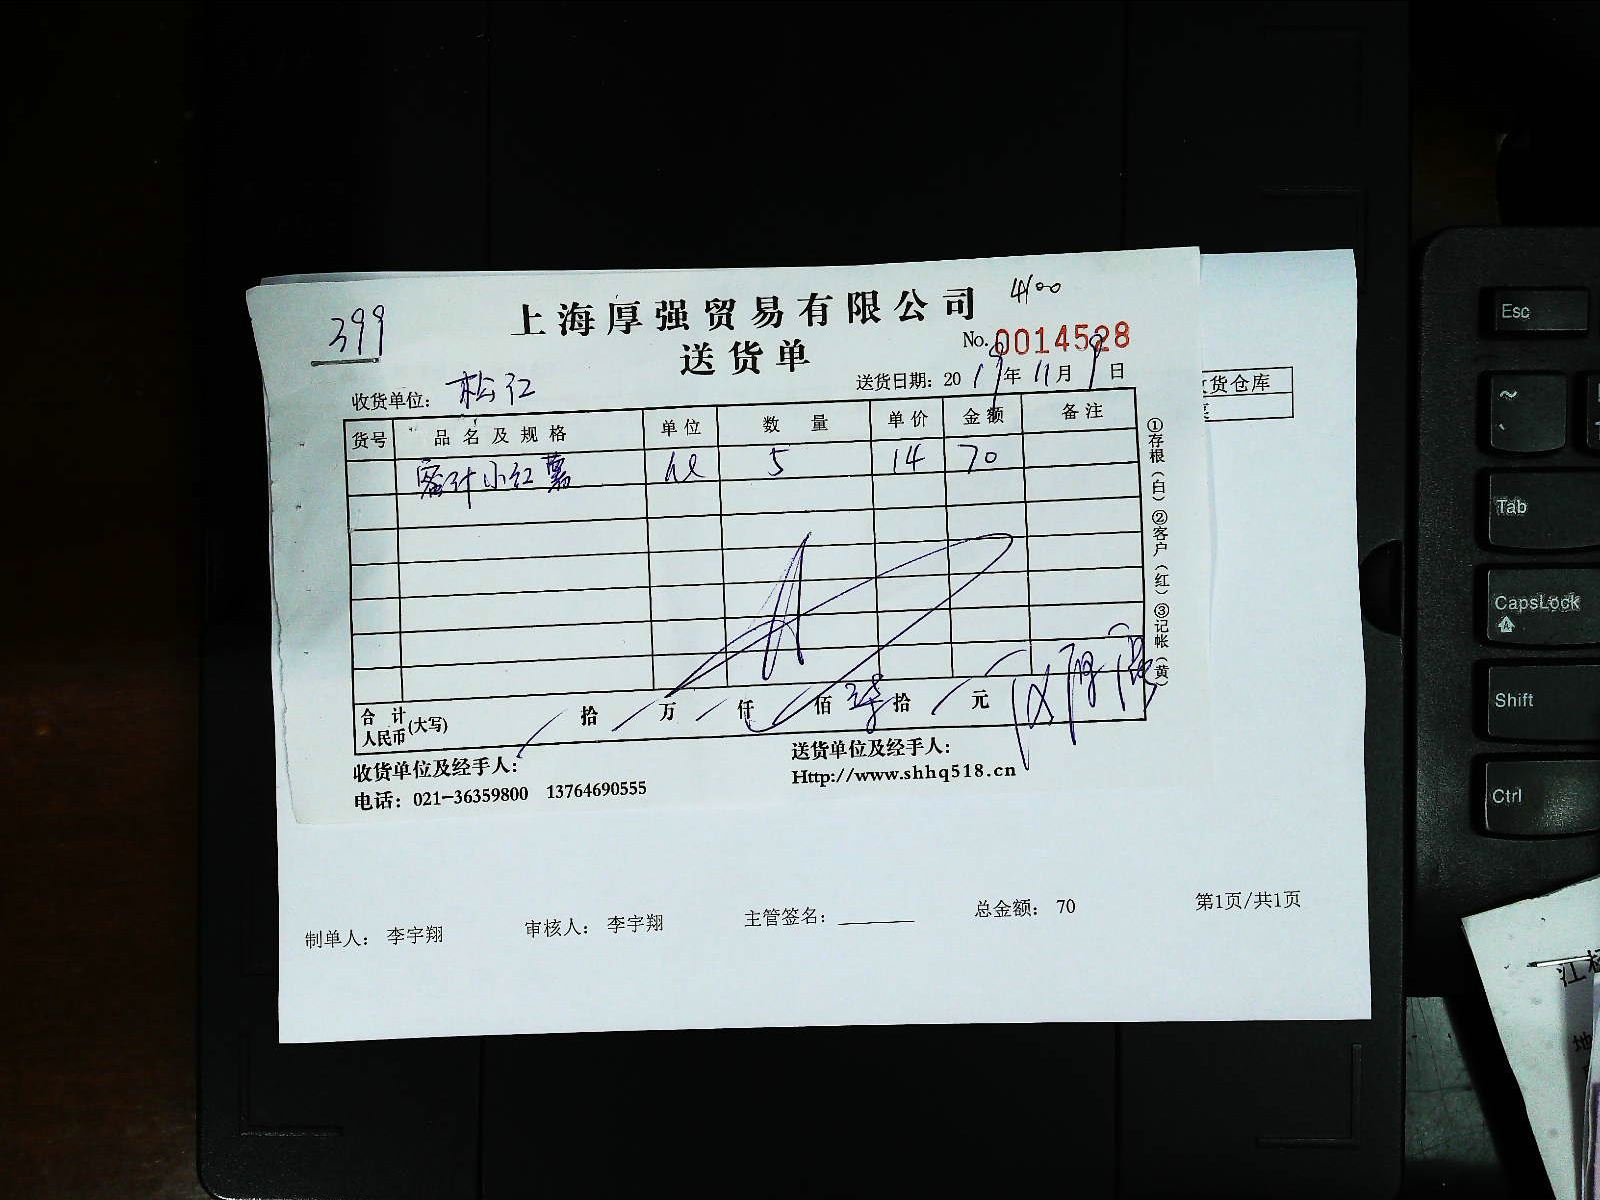 399
上海厚强贸易有限公司
4100
送货单
No. 0014528
收货单位： 松江
送货日期：2019年11月9日
货号 品名及规格 单位 数量 单价 金额 备注
蜜汁小红薯 5 14 70
合计人民币（大写） 拾 万 仟 佰 柒拾 元
收货单位及经手人：
送货单位及经手人：
电话：021-36359800 13764690555
Http://www.shhq518.cn
①存根（白）②客户（红）③记帐（黄）
货仓库
制单人： 李宇翔 审核人： 李宇翔 主管签名： 总金额： 70 第1页/共1页
Esc
~
Tab
CapsLock
Shift
Ctrl